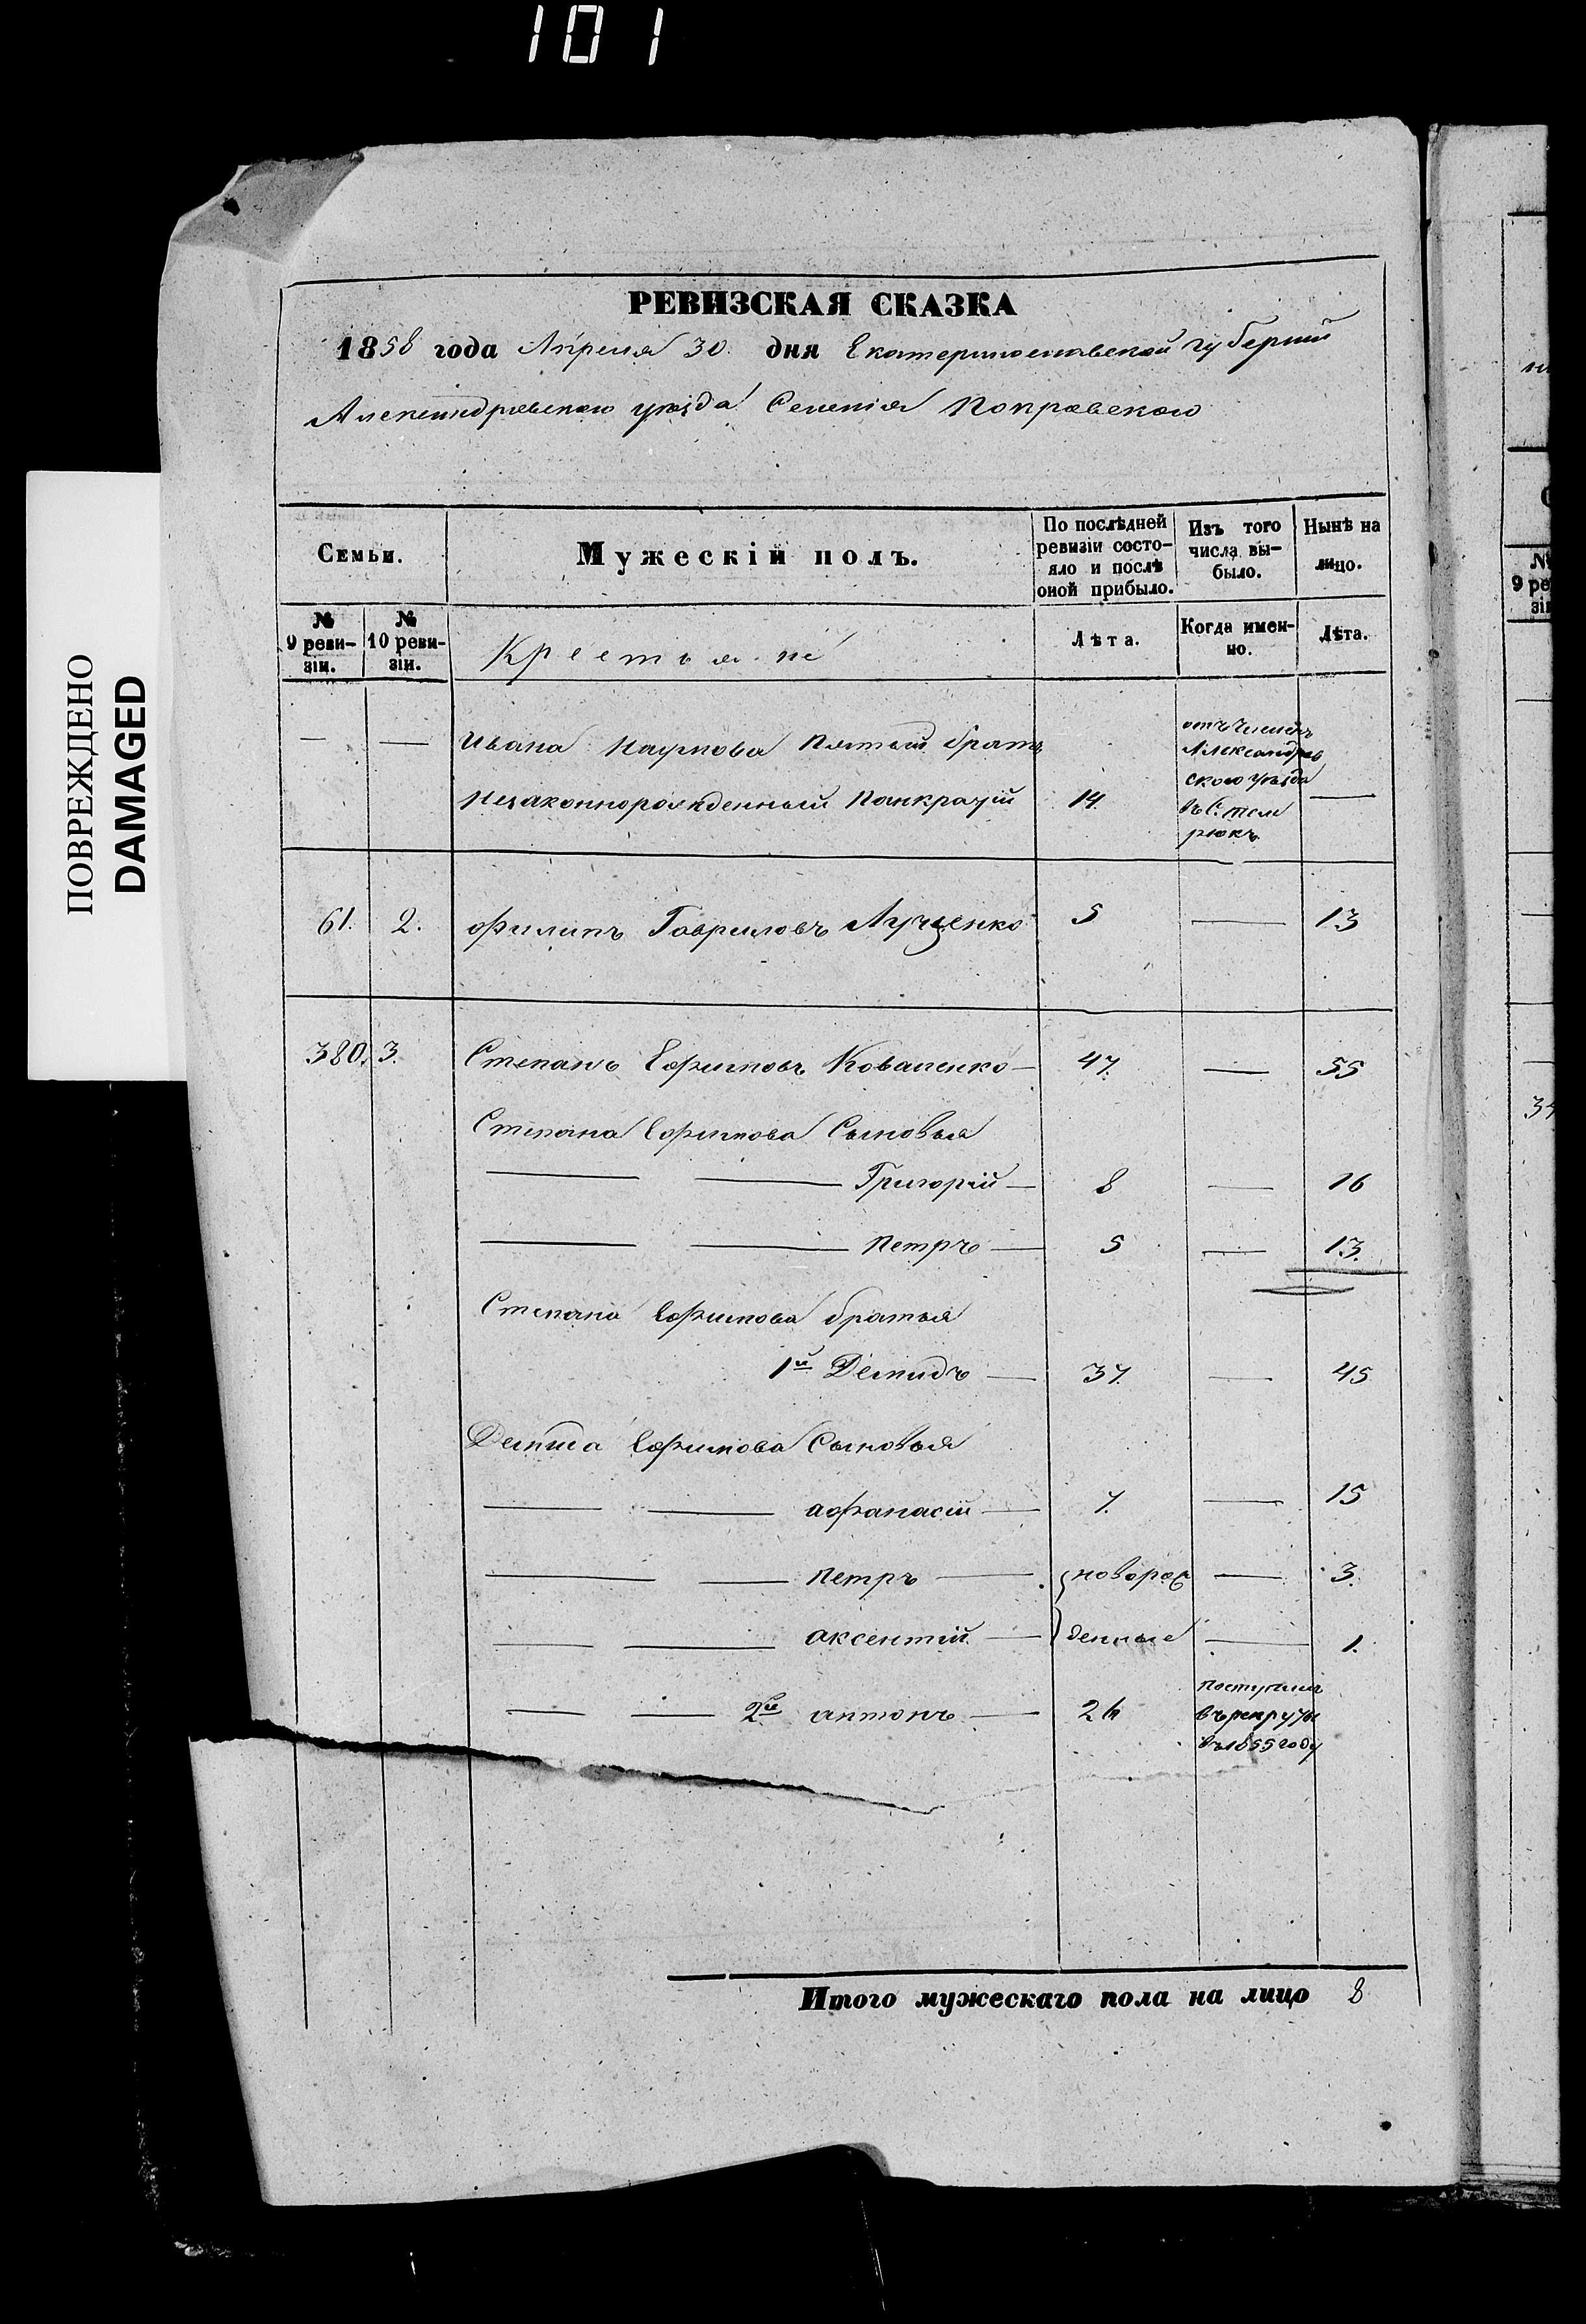 101
ПОВРЕЖДЕНО
DAMAGED
РЕВИЗСКАЯ СКАЗКА
1858 года Апреля 30. дня Екатеринославской губернии
Александровского уѣзда Селенія Покровского
Семьи.
Мужескій полъ.
По послѣдней ревизіи состо-
яло и послѣ оной прибыло.
Изъ того числа вы-
было.
Нынѣ на лицо.
№ 9 реви-
зіи.
№ 10 реви-
зіи.
Крестьяне
Лѣта.
Когда имен-
но.
Лѣта.
— — Ивана Наумова пятый братъ
Незаконнорожденный Панкратій 14. —
Александров
ского уѣзда
въ С. Тем
рюкъ
61. 2. Филипъ Гавриловъ Луценко 5 — 13
380. 3. Степанъ Ефимовъ Коваленко — 47. — 55
Степана Ефимова Сыновья
— — Григорій — 8 — 16
— — Петръ — 5 — 13.
Степана Ефимова братья
1й Демидъ — 37. — 45
Демида Ефимова Сыновья
— — афанасій — 7. — 15
— — Петръ — новорож — 3.
— — аксентій — денные — 1.
— — 2й антонъ — 24
поступилъ
въ рекруты
въ 1855 году
Итого мужескаго пола на лицо 8
№
9 ре
зі